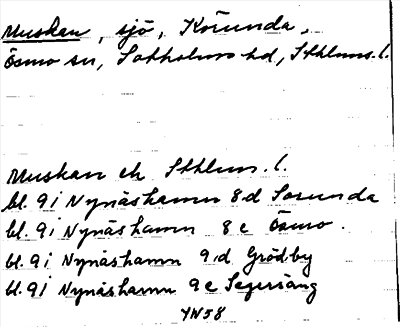 Muskan, sjö, Körunda,
Ösmo sn, Sotholms hd, Sthlms. l.
Muskan ek. Sthlms. l.
bl. 9 i Nynäshamn 8 d Sorunda
bl. 9 i Nynäshamn 8 e Ösmo.
bl. 9 i Nynäshamn 9 d Grödby
bl. 9 i Nynäshamn 9 e Segersäng
YN58